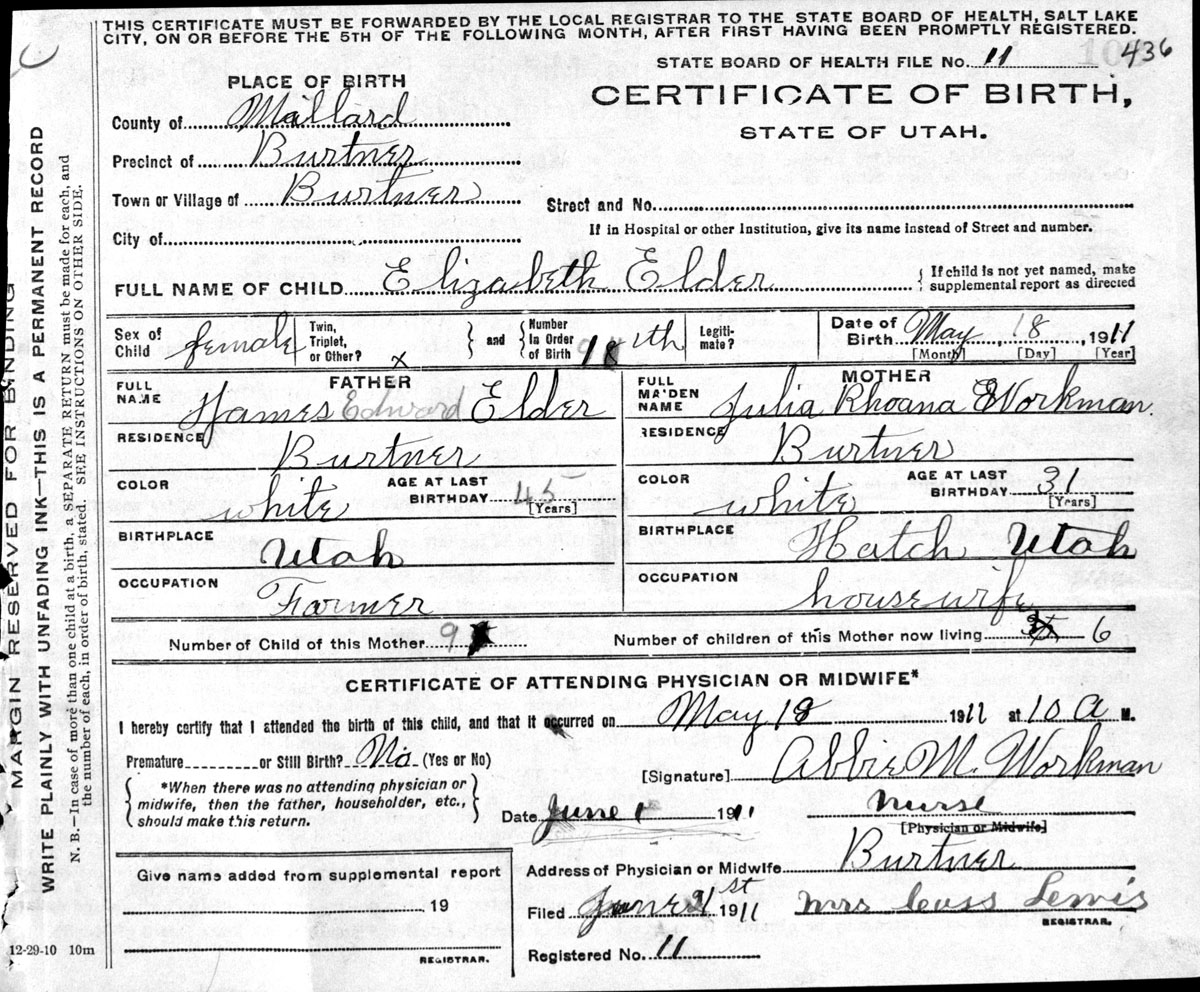 THIS CERTIFICATE MUST BE FORWARDED BY THE LOCAL REGISTRAR TO THE STATE BOARD OF HEALTH, SALT LAKE
CITY, ON OR BEFORE THE 5TH OF THE FOLLOWING MONTH, AFTER FIRST HAVING BEEN PROMPTLY REGISTERED.
STATE BOARD OF HEALTH FILE No. 11 436
PLACE OF BIRTH
CERTIFICATE OF BIRTH,
STATE OF UTAH.
County of Millard
Precinct of Burtner
Town or Village of Burtner
Street and No.
City of
If in Hospital or other Institution, give its name instead of Street and number.
FULL NAME OF CHILD Elizabeth Elder
{ If child is not yet named, make
supplemental report as directed
Sex of Child female
Twin, Triplet, or Other? x } and { Number In Order of Birth th
Legiti-mate?
Date of Birth May, 18, 1911
[Month] [Day] [Year]
FATHER
FULL NAME James Edward Elder
RESIDENCE Burtner
COLOR white AGE AT LAST BIRTHDAY 45 [Years]
BIRTHPLACE Utah
OCCUPATION Farmer
MOTHER
FULL MAIDEN NAME Julia Rhoana Workman
RESIDENCE Burtner
COLOR white AGE AT LAST BIRTHDAY 31 [Years]
BIRTHPLACE Hatch Utah
OCCUPATION housewife
Number of Child of this Mother 9
Number of children of this Mother now living 6
CERTIFICATE OF ATTENDING PHYSICIAN OR MIDWIFE*
I hereby certify that I attended the birth of this child, and that it occurred on May 18 1911 at 10 A M.
Premature or Still Birth? No (Yes or No)
{ *When there was no attending physician or
midwife, then the father, householder, etc.,
should make this return. }
[Signature] Abbie M. Workman
Date June 1 1911
nurse
[Physician or Midwife]
Address of Physician or Midwife Burtner
Give name added from supplemental report
19
REGISTRAR.
Filed June 1st 1911 Mrs Cass Lewis
REGISTRAR.
Registered No. 11
12-29-10 10m
MARGIN RESERVED FOR BINDING
WRITE PLAINLY WITH UNFADING INK—THIS IS A PERMANENT RECORD
N. B.—In case of more than one child at a birth, a SEPARATE RETURN must be made for each, and
the number of each, in order of birth, stated. SEE INSTRUCTIONS ON OTHER SIDE.